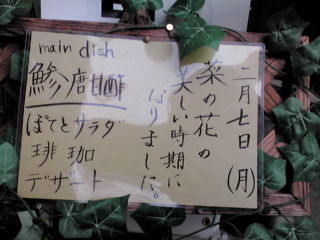 二月七日(月)
菜の花の
美しい時期に
なりました。
main dish
鯵唐
ぽてとサラダ
珈琲
デザート